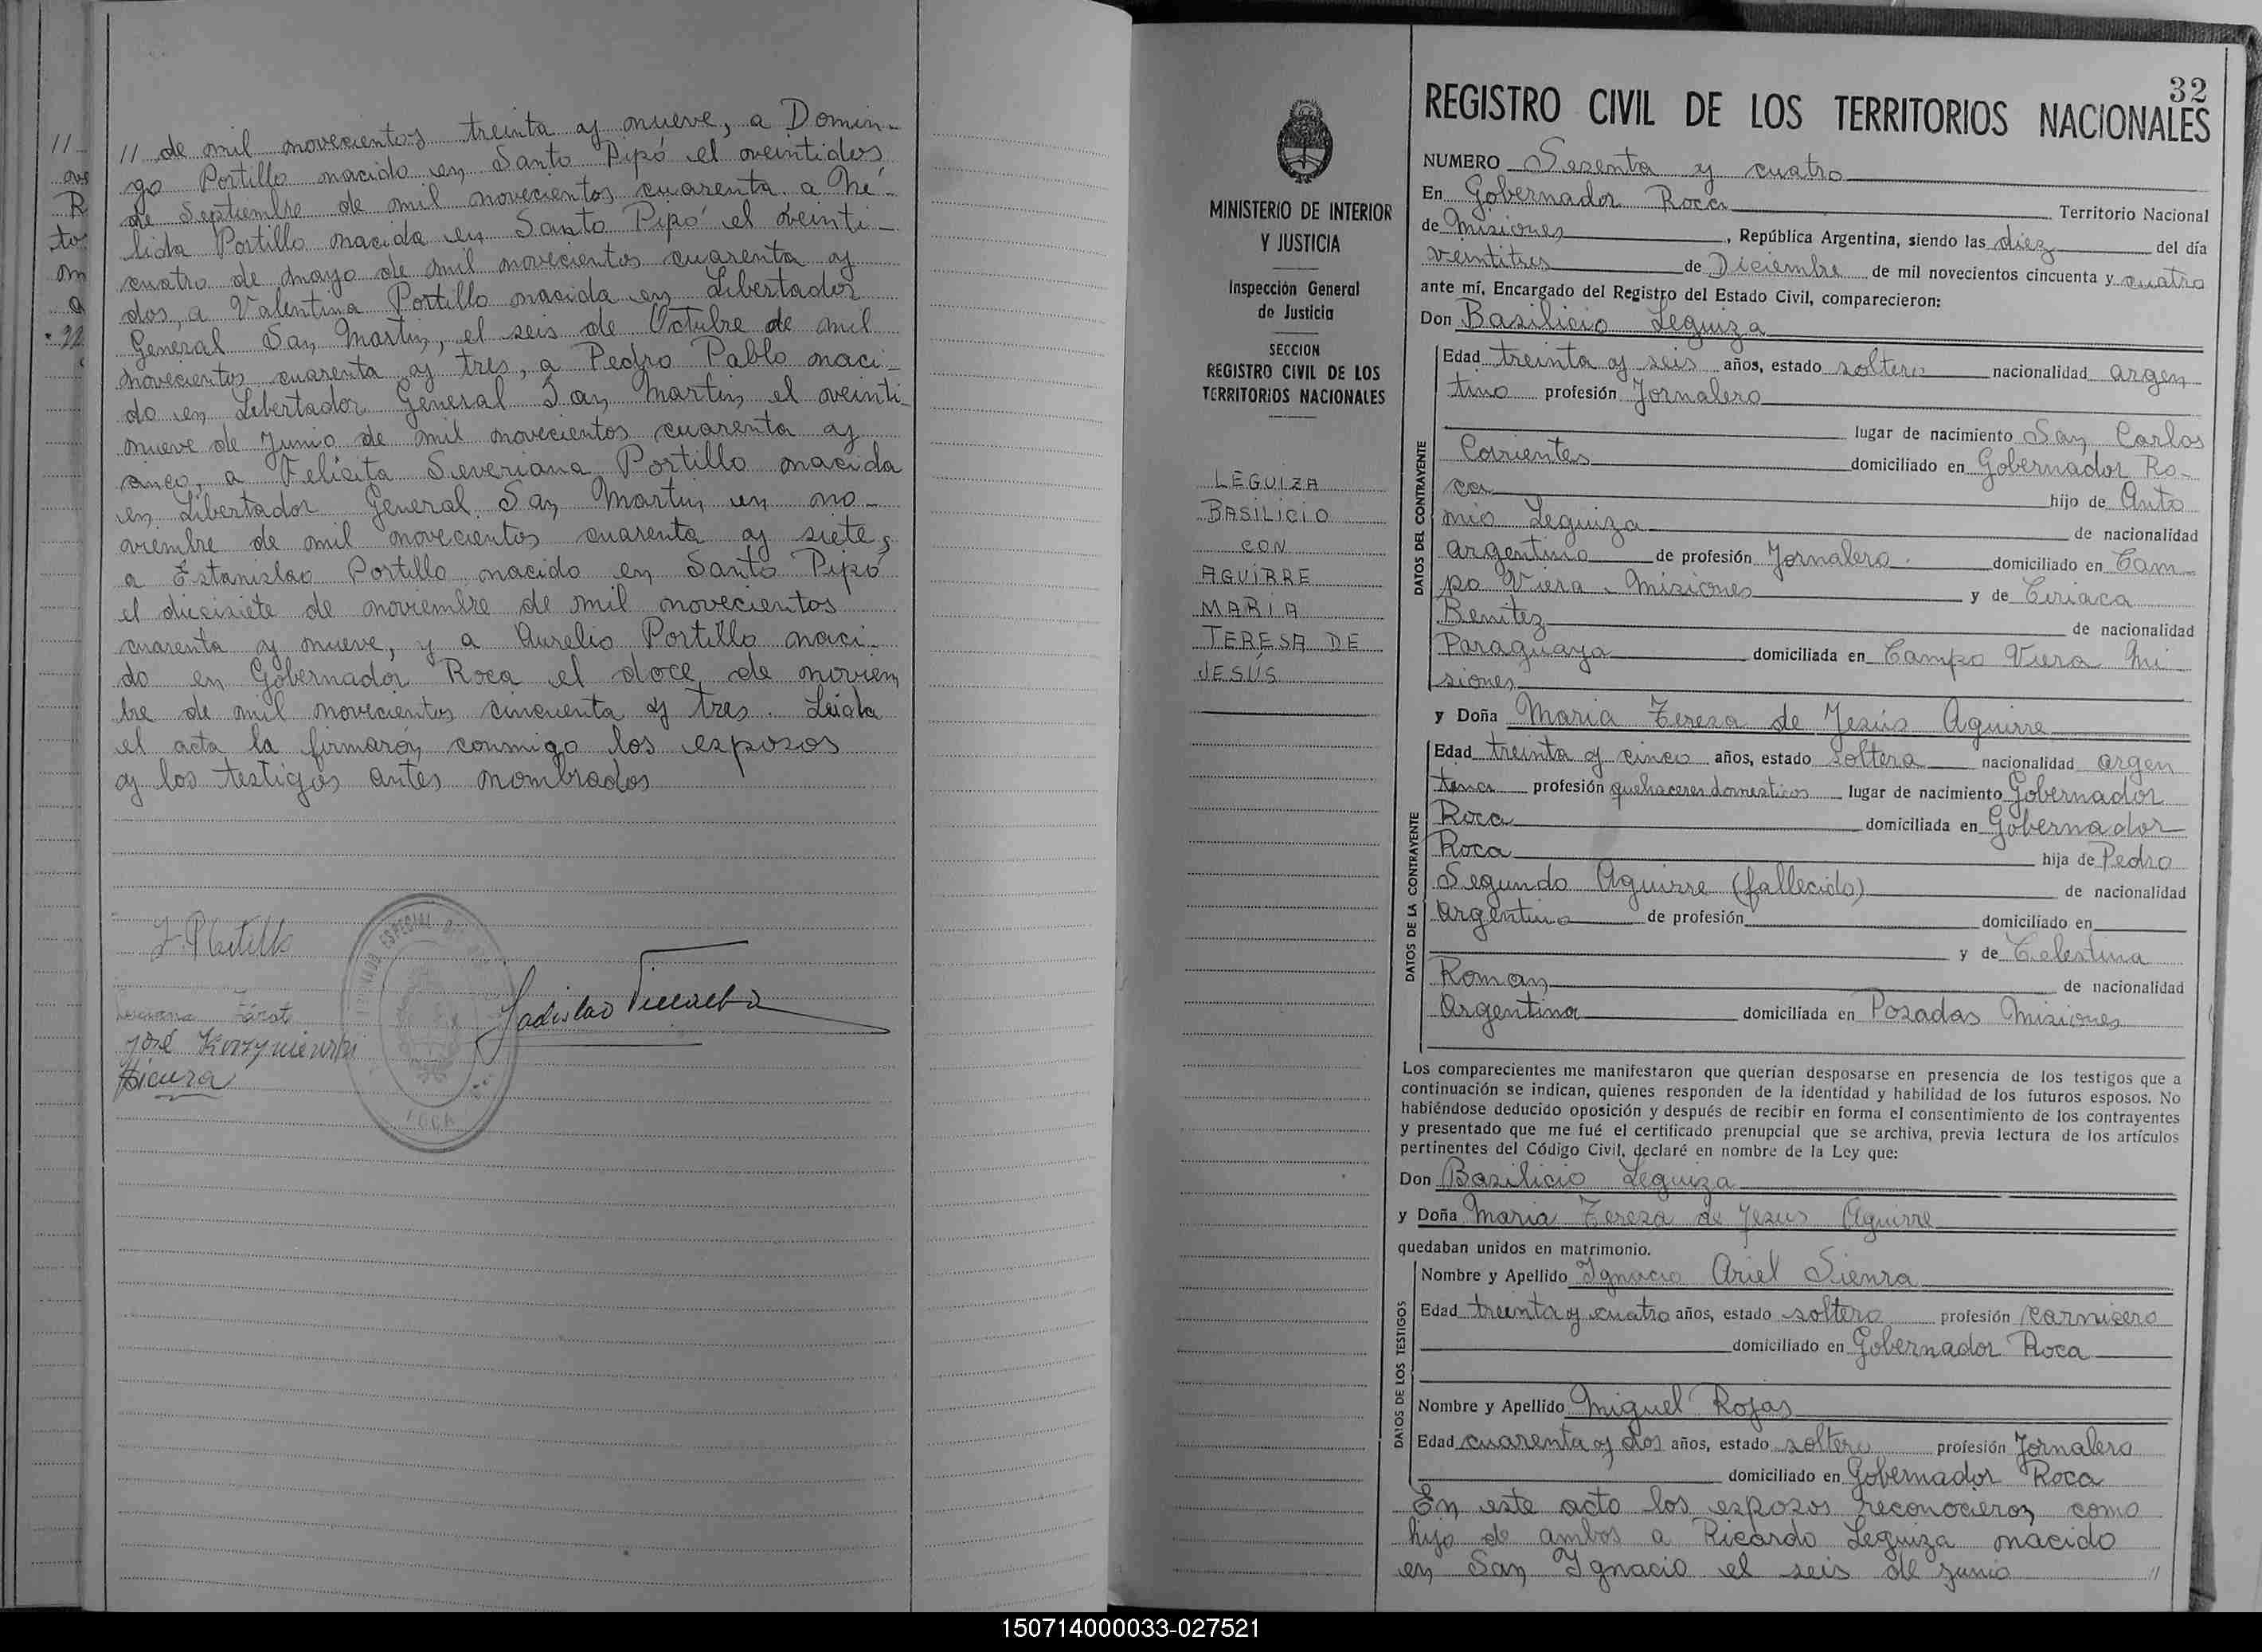 // de mil novecientos treinta y nueve, a Domin-
go Portillo nacido en Santo Pipó el veintidos
de Septiembre de mil novecientos cuarenta a Né-
lida Portillo nacida en Santo Pipó el veinti-
cuatro de mayo de mil novecientos cuarenta y
dos, a Valentina Portillo nacida en Libertador
General San Martin, el seis de Octubre de mil
novecientos cuarenta y tres, a Pedro Pablo naci-
do en Libertador General San Martin el veinti-
nueve de Junio de mil novecientos cuarenta y
cinco, a Felicita Severiana Portillo nacida
en Libertador General San Martin en no-
viembre de mil novecientos cuarenta y siete,
a Estanislao Portillo nacido en Santo Pipó
el diecisiete de noviembre de mil novecientos
cuarenta y nueve, y a Aurelio Portillo naci-
do en Gobernador Roca el doce de noviem
bre de mil novecientos cincuenta y tres. Leida
el acta la firmaron conmigo los esposos
y los testigos antes nombrados
ESPECIAL
ROCA
José
32
REGISTRO CIVIL DE LOS TERRITORIOS NACIONALES
MINISTERIO DE INTERIOR
Y JUSTICIA
Inspección General
de Justicia
SECCION
REGISTRO CIVIL DE LOS
TERRITORIOS NACIONALES
LEGUIZA
BASILICIO
CON
AGUIRRE
MARIA
TERESA DE
JESÚS
NUMERO Sesenta y cuatro
En Gobernador Roca Territorio Nacional
de Misiones, República Argentina, siendo las diez del día
veintitres de Diciembre de mil novecientos cincuenta y cuatro
ante mí, Encargado del Registro del Estado Civil, comparecieron:
Don Basilicio Leguiza
DATOS DEL CONTRAYENTE
Edad treinta y seis años, estado soltero nacionalidad argen
tino profesión Jornalero
lugar de nacimiento San Carlos
Corrientes domiciliado en Gobernador Ro-
ca hijo de Anto
nio Leguiza de nacionalidad
argentino de profesión Jornalero domiciliado en Cam
po Viera Misiones y de Ciriaca
Benitez de nacionalidad
Paraguaya domiciliada en Campo Viera Mi
siones
y Doña Maria Teresa de Jesús Aguirre
DATOS DE LA CONTRAYENTE
Edad treinta y cinco años, estado soltera nacionalidad argen
tina profesión quehaceres domesticos lugar de nacimiento Gobernador
Roca domiciliada en Gobernador
Roca hija de Pedro
Segundo Aguirre (fallecido) de nacionalidad
Argentino de profesión domiciliado en
y de Celestina
Roman de nacionalidad
Argentina domiciliada en Posadas Misiones
Los comparecientes me manifestaron que querían desposarse en presencia de los testigos que a
continuación se indican, quienes responden de la identidad y habilidad de los futuros esposos. No
habiéndose deducido oposición y después de recibir en forma el consentimiento de los contrayentes
y presentado que me fué el certificado prenupcial que se archiva, previa lectura de los artículos
pertinentes del Código Civil, declaré en nombre de la Ley que:
Don Basilicio Leguiza
y Doña Maria Teresa de Jesus Aguirre
quedaban unidos en matrimonio.
DATOS DE LOS TESTIGOS
Nombre y Apellido Ignacio Ariel Sienra
Edad treinta y cuatro años, estado soltero profesión carnicero
domiciliado en Gobernador Roca
Nombre y Apellido Miguel Rojas
Edad cuarenta y dos años, estado soltero profesión Jornalero
domiciliado en Gobernador Roca
En este acto los esposos reconocieron como
hijo de ambos a Ricardo Leguiza nacido
en San Ignacio el seis de junio //
150714000033-027521